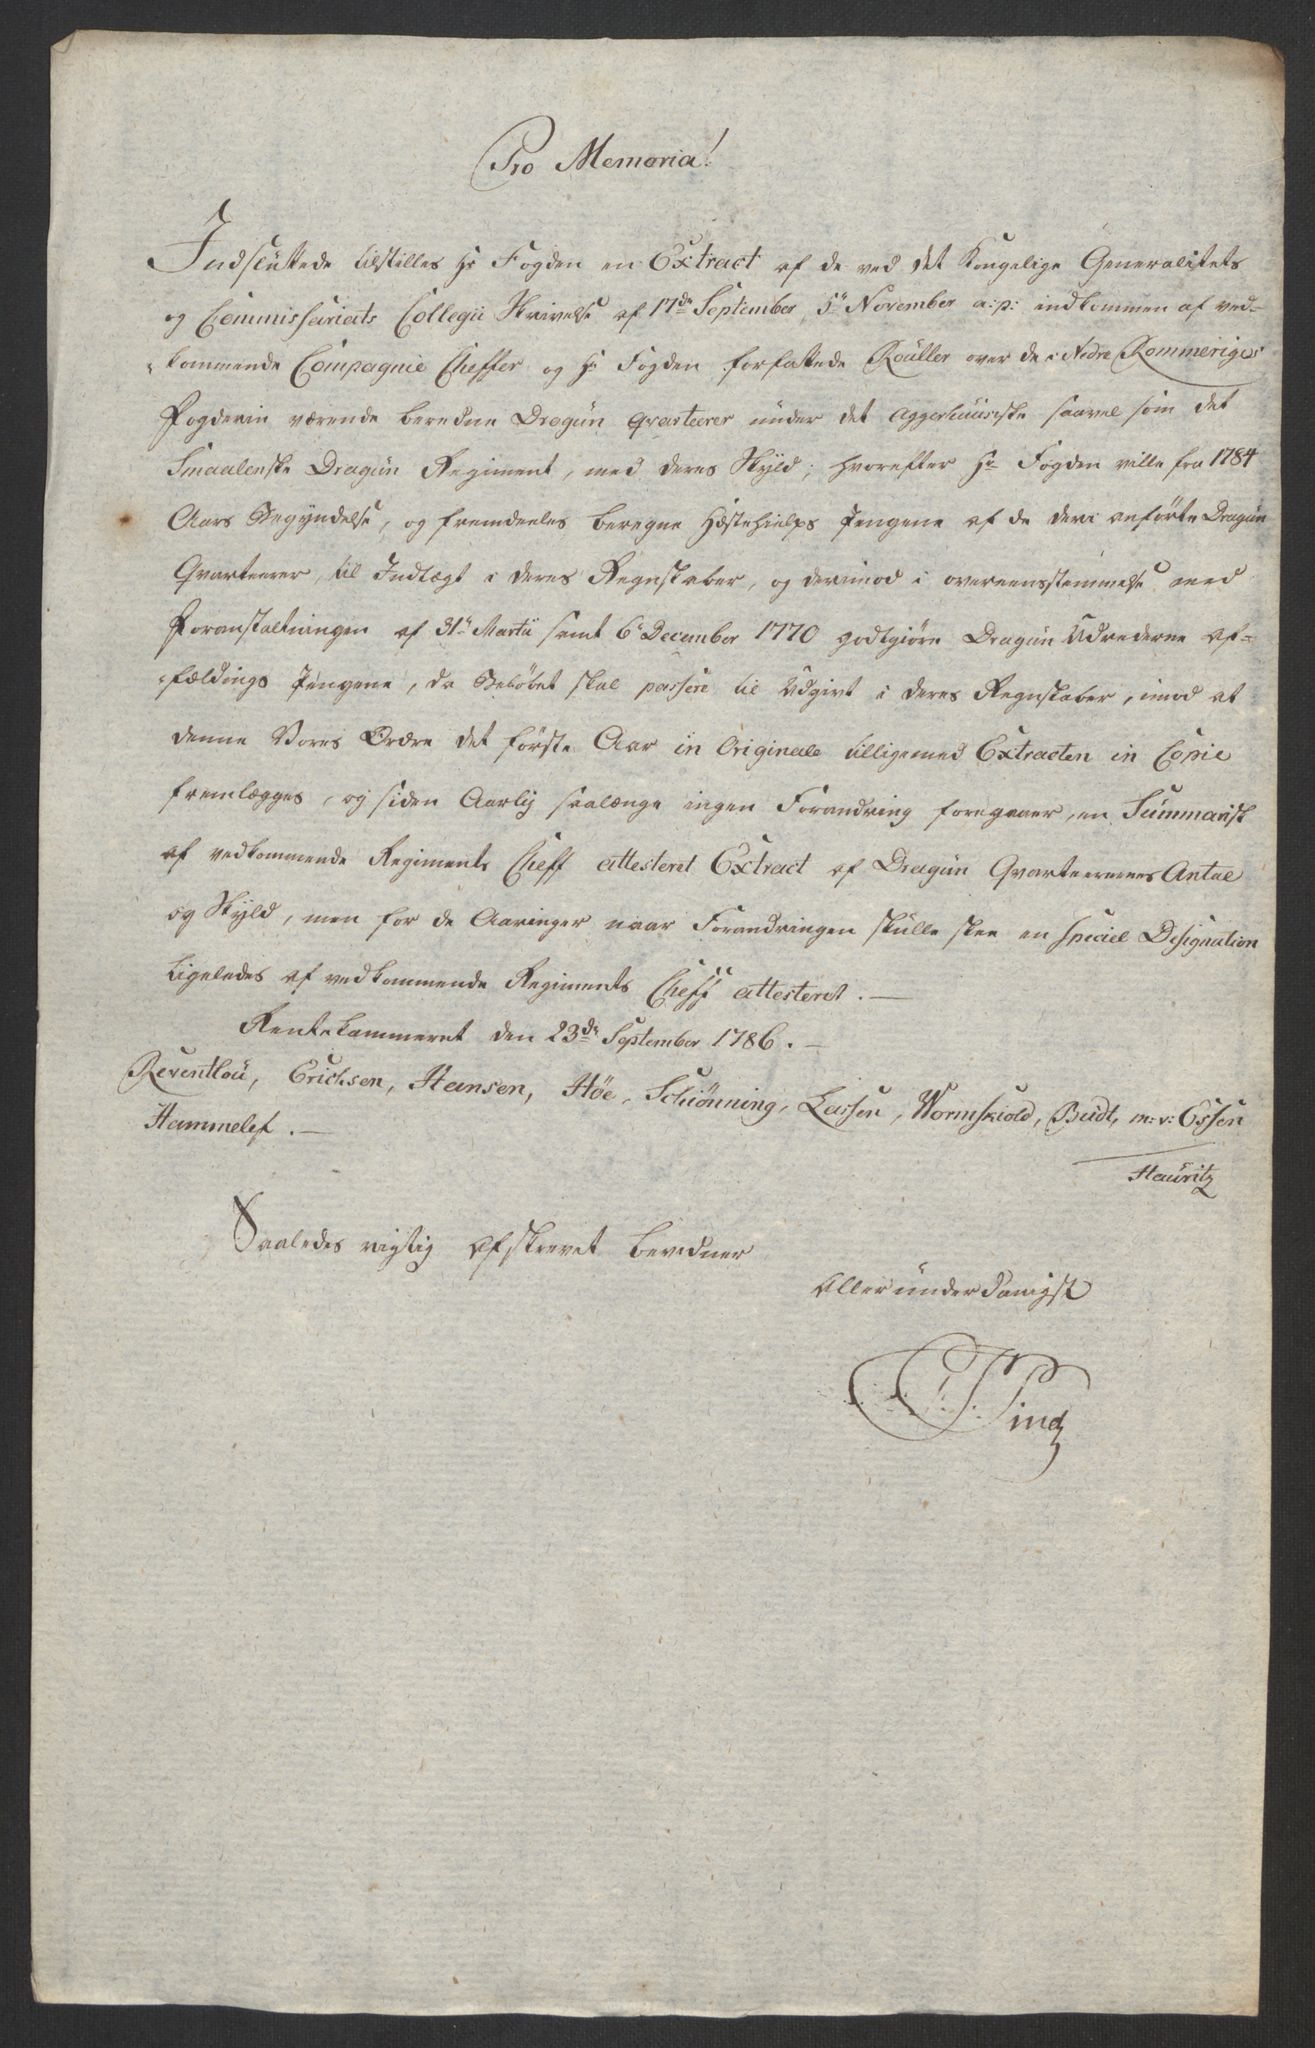 Pro Memoria!
Indsluttede tilstilles Hr Fogden en Extract af de ved det Kongelige Generalitets
og Commissariats Collegii Skrivelse af 17de September, 5te November a: p: indkommen af ved-
-kommende Compagnie Cheffer og Hr Fogden forfattede Roüller over de i Nedre Rommeriges
Fogderie værende beredne Dragün Qvarteerer ünder det Aggerhüüsiske saavel som det
Smaalenske Dragün Regiment, med deres Skyld; hvorefter Hr Fogden ville fra 1784
Aars Begyndelse, og fremdeeles beregne Hæstehielps Pengene af de deri anførte Dragün
Qvarteerer, til Indtægt i deres Regnskaber, og derimod i overeensstemmelse med
Foranstaltningen af 31te Martii samt 6te December 1770 godtgiøre Dragün Udrederne af-
-fældings Pengene, da Beløbet skal passere til Udgivt i deres Regnskaber, imod at
denne Vores Ordre det første Aar in Originale tilligemed Extracten in Copie
fremlægges, og siden Aarlig saalænge ingen Forandring foregaaer, en Summarisk
af vedkommende Regiments Cheff attesteret Extract af Dragün Qvarteerernes Antal
og Skyld, men for de Aaringer naar Forandringen skülle skee en speciel Designation
ligeledes af vedkommende Regiments Cheff attesteret. —
Rentekammeret den 23de September 1786. —
Reventlou, Erichsen, Hansen, Høe, Schiønning, Lassen, Wormskiold, Beidt, m: v: Essen
Hammelef. —
Hauritz
Saaledes rigtig Afskrevet bevidner
Alleründerdanigst